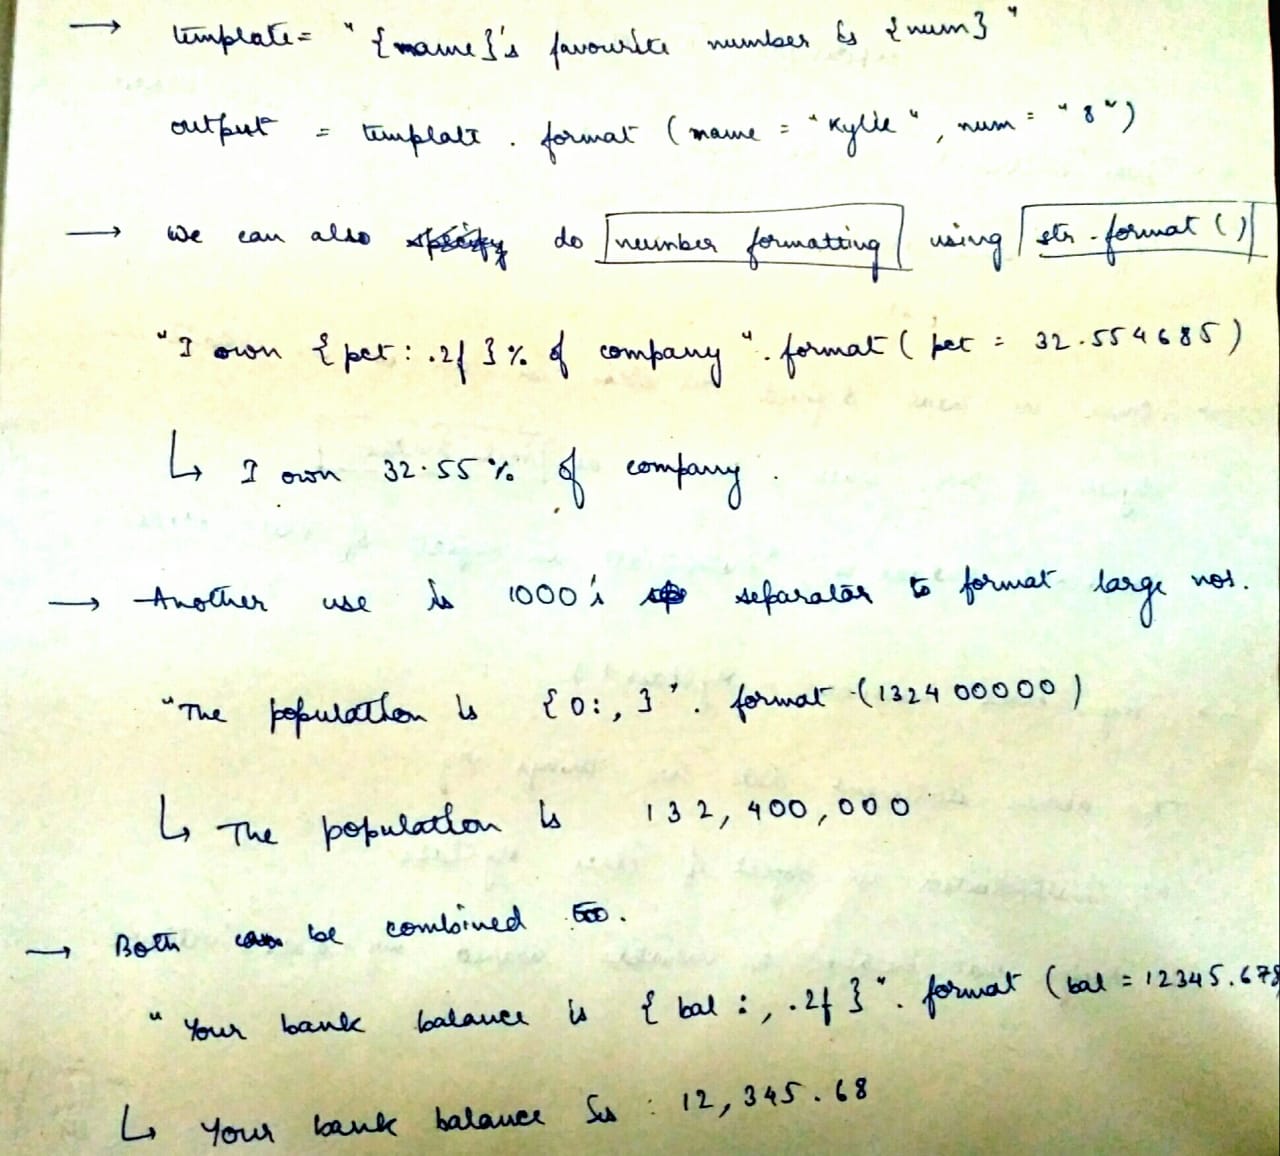 → template = "{name}'s favourite number is {num}"
output = template . format (name = "Kylie", num = "8")
→ we can also do number formatting using str.format()
"I own {pct : .2f}% of company". format (pct = 32.554685)
↳ I own 32.55% of company.
→ Another use is 1000's separator to format large nos.
"The population is {0:,}". format (132400000)
↳ The population is 132,400,000
→ Both can be combined.
"Your bank balance is {bal : , .2f}". format (bal = 12345.678
↳ Your bank balance is : 12,345.68